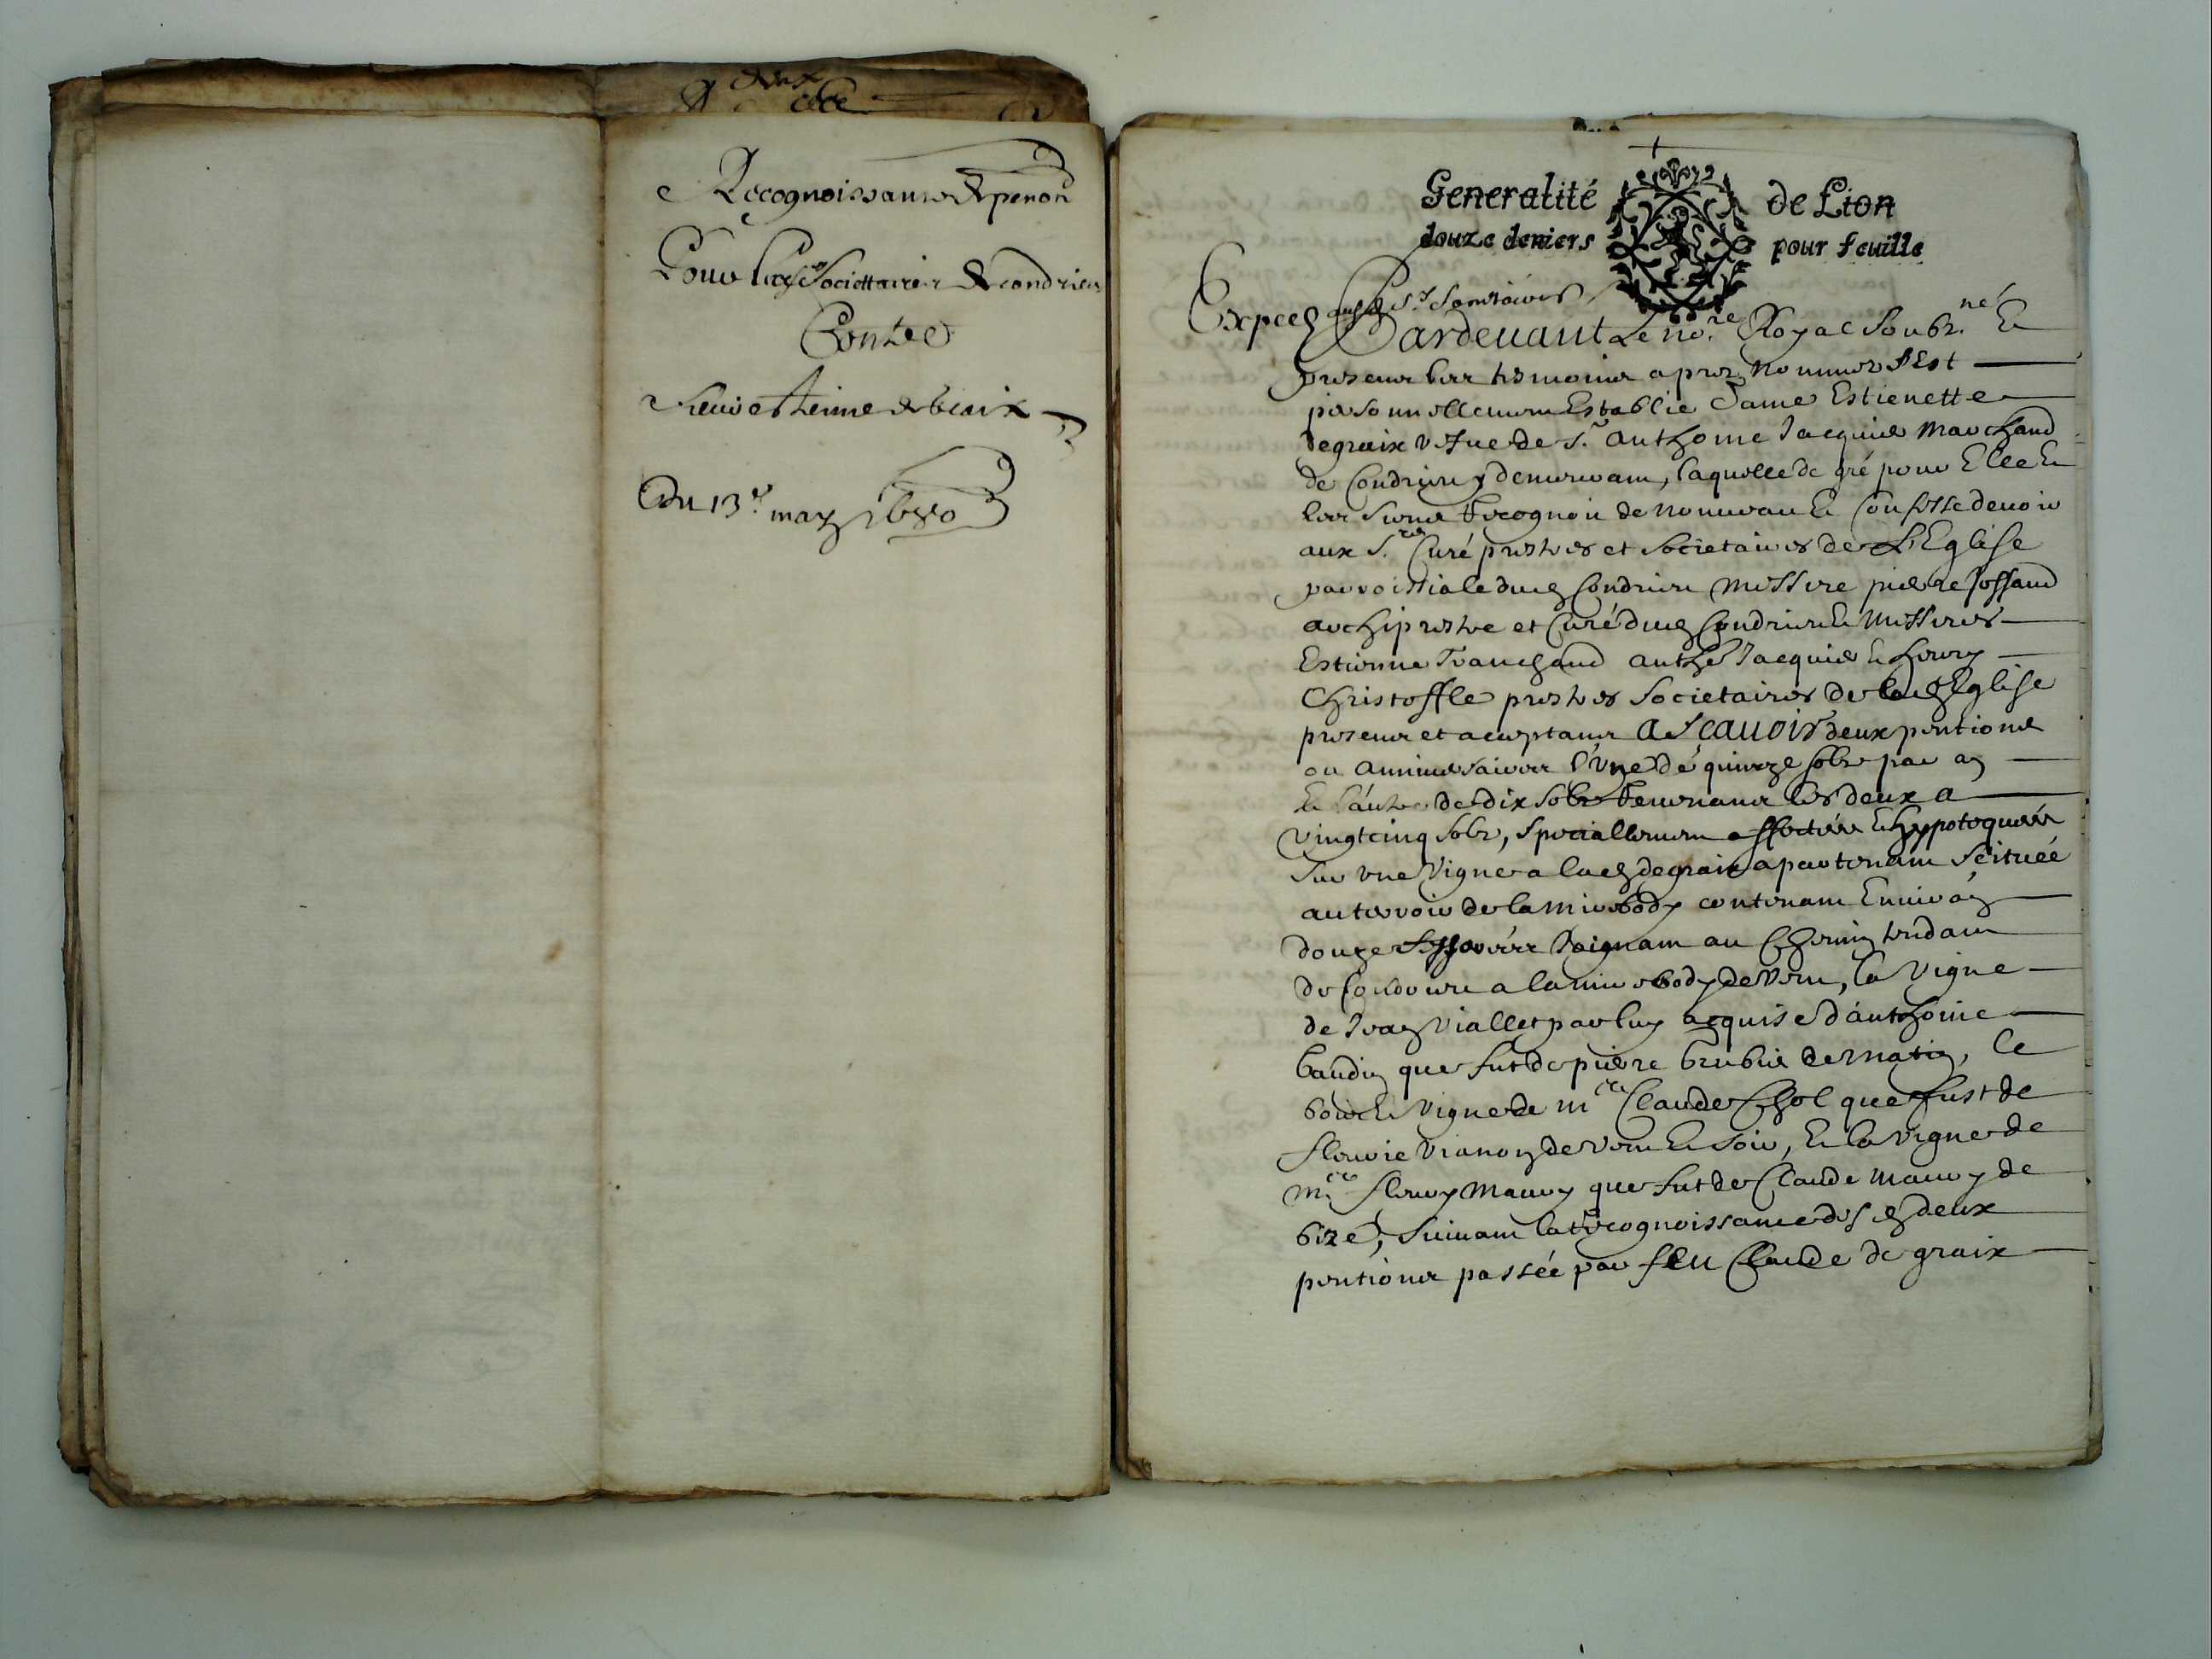 Recognoissance de pention
Pour les Srs Societtaires de Condrieu
Contre
du 13e may 1680
Generalité de Lion
douze deniers pour feuille
Expedié ausd. Srs Societaires
Pardevant Le nore Royal Soubzné Et
presens les tesmoins apres nommes s'Est
personnellement Establie Dame Estienette
degraix vefue de Sr. anthoine Jacquier Marchand
de Condrieu y demeurant, laquelle de gré pour Elle Et
les siens Recognoit de nouueau Et Confesse deuoir
aux Srs Curé prestres et Societaires de L'Eglise
parroissiale dud Condrieu Messire pierre Joffand
archiprestre et Curé dud Condrieu Et Messires
Estienne Tranchand anthe Jacquier Et fleury
Christoffle prestres Societaires de lad Eglise
presens et aceptans A Scauoir deux pentions
ou anniuersaires l'vne de quinze solz par an
Et l'autre de dix solz Reuenans les deux a
vingtcinq solz, speciallement affectées Et hypotequées
sur vne Vigne a lad degraix apartenant scituée
au terroir de la contenant Enuiron
douze Joignant au Chemin tendant
de a la de vent, la Vigne
de Jean Viallet par luy acquise d'anthoine
baudin que fut de pierre de matin, le
bois Et Vigne de mre Claude Chol que fust de
fleurie de vent Et soir, Et la vigne de
mre fleury Maury que fut de Claude Maury de
bize, suiuant la Recognoissance desd deux
pentions passée par feu Claude de graix